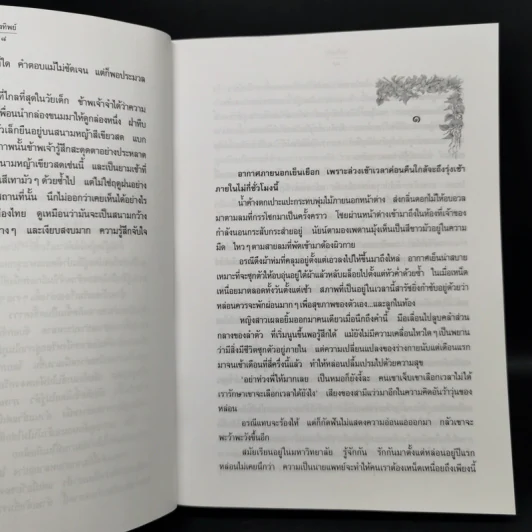 ทิพย์
๘
ใด คำตอบแม่ไม่ชัดเจน แต่ก็พอประมวล
ที่ไกลที่สุดในวัยเด็ก ข้าพเจ้าจำได้ว่าความ
เพื่อนนำกล่องขนมมาให้ดูกล่องหนึ่ง ฝาหีบ
เล็กยืนอยู่บนสนามหญ้าสีเขียวสด แบก
ภาพนั้นข้าพเจ้ารู้สึกสะดุดตาอย่างประหลาด
นามหญ้าเขียวสดเช่นนี้ และเป็นยามเช้าที่
สีเทามัวๆ ด้วยซ้ำไป แต่ไม่ใช่ฤดูฝนอย่าง
สถานที่นั้น นึกไม่ออกว่าเคยเห็นได้อย่างไร
องไทย ดูเหมือนว่ามันจะเป็นสนามกว้าง
างๆ และเงียบสงบมาก ความรู้สึกจับใจ
๑
อากาศภายนอกเย็นเยือก เพราะล่วงเข้าเวลาค่อนคืนใกล้จะถึงรุ่งเช้า
ภายในไม่กี่ชั่วโมงนี้
น้ำค้างตกเปาะแปะกระทบพุ่มไม้ภายนอกหน้าต่าง ส่งกลิ่นดอกไม้ให้อบอวล
มาตามลมที่กรรโชกมาเป็นครั้งคราว โชยผ่านหน้าต่างเข้ามาถึงในห้องที่เจ้าของ
กำลังนอนกระสับกระส่ายอยู่ นัยน์ตามองเพดานมุ้งเห็นเป็นสีขาวมัวอยู่ในความ
มืด ไหวๆ ตามสายลมที่พัดเข้ามาต้องผิวกาย
อรณีดึงผ้าห่มที่คลุมอยู่ตั้งแต่เอวลงไปให้ขึ้นมาถึงไหล่ อากาศเย็นน่าสบาย
เหมาะที่จะซุกตัวให้อบอุ่นอยู่ใต้ผ้าแล้วหลับผล็อยไปตั้งแต่หัวค่ำด้วยซ้ำ ในเมื่อเหน็ด
เหนื่อยมาตลอดทั้งวันตั้งแต่เช้า สภาพที่เป็นอยู่ในเวลานี้สารัชยิ่งกำชับอยู่ด้วยว่า
หล่อนควรจะพักผ่อนมากๆ เพื่อสุขภาพของตัวเอง...และลูกในท้อง
หญิงสาวเผลอยิ้มออกมาคนเดียวเมื่อนึกถึงคำนี้ มือเลื่อนไปลูบคลำส่วน
กลางของลำตัว ที่เริ่มนูนขึ้นพอรู้สึกได้ แม้ยังไม่มีความเคลื่อนไหวใดๆ เป็นพยาน
ว่ามีสิ่งมีชีวิตซุกตัวอยู่ภายใน แต่ความเปลี่ยนแปลงของร่างกายนับแต่เดือนแรก
มาจนเข้าเดือนที่สี่ครึ่งนี้แล้ว ทำให้หล่อนปลื้มเปรมไปด้วยความสุข
'อย่าห่วงพี่ให้มากเลย เป็นหมอก็ยังงี้ละ คนเขาเจ็บเขาเลือกเวลาไม่ได้
เรารักษาเขาจะเลือกเวลาได้ยังไง' เสียงของสามีแว่วมาอีกในความคิดอันว้าวุ่นของ
หล่อน
อรณีแทบจะร้องไห้ แต่ก็กัดฟันไม่แสดงความอ่อนแอออกมา กลัวเขาจะ
พะว้าพะวังขึ้นอีก
สมัยเรียนอยู่ในมหาวิทยาลัย รู้จักกัน รักกันมาตั้งแต่หล่อนอยู่ปีแรก
หล่อนไม่เคยนึกว่า ความเป็นนายแพทย์จะทำให้คนเราต้องเหน็ดเหนื่อยถึงเพียงนี้